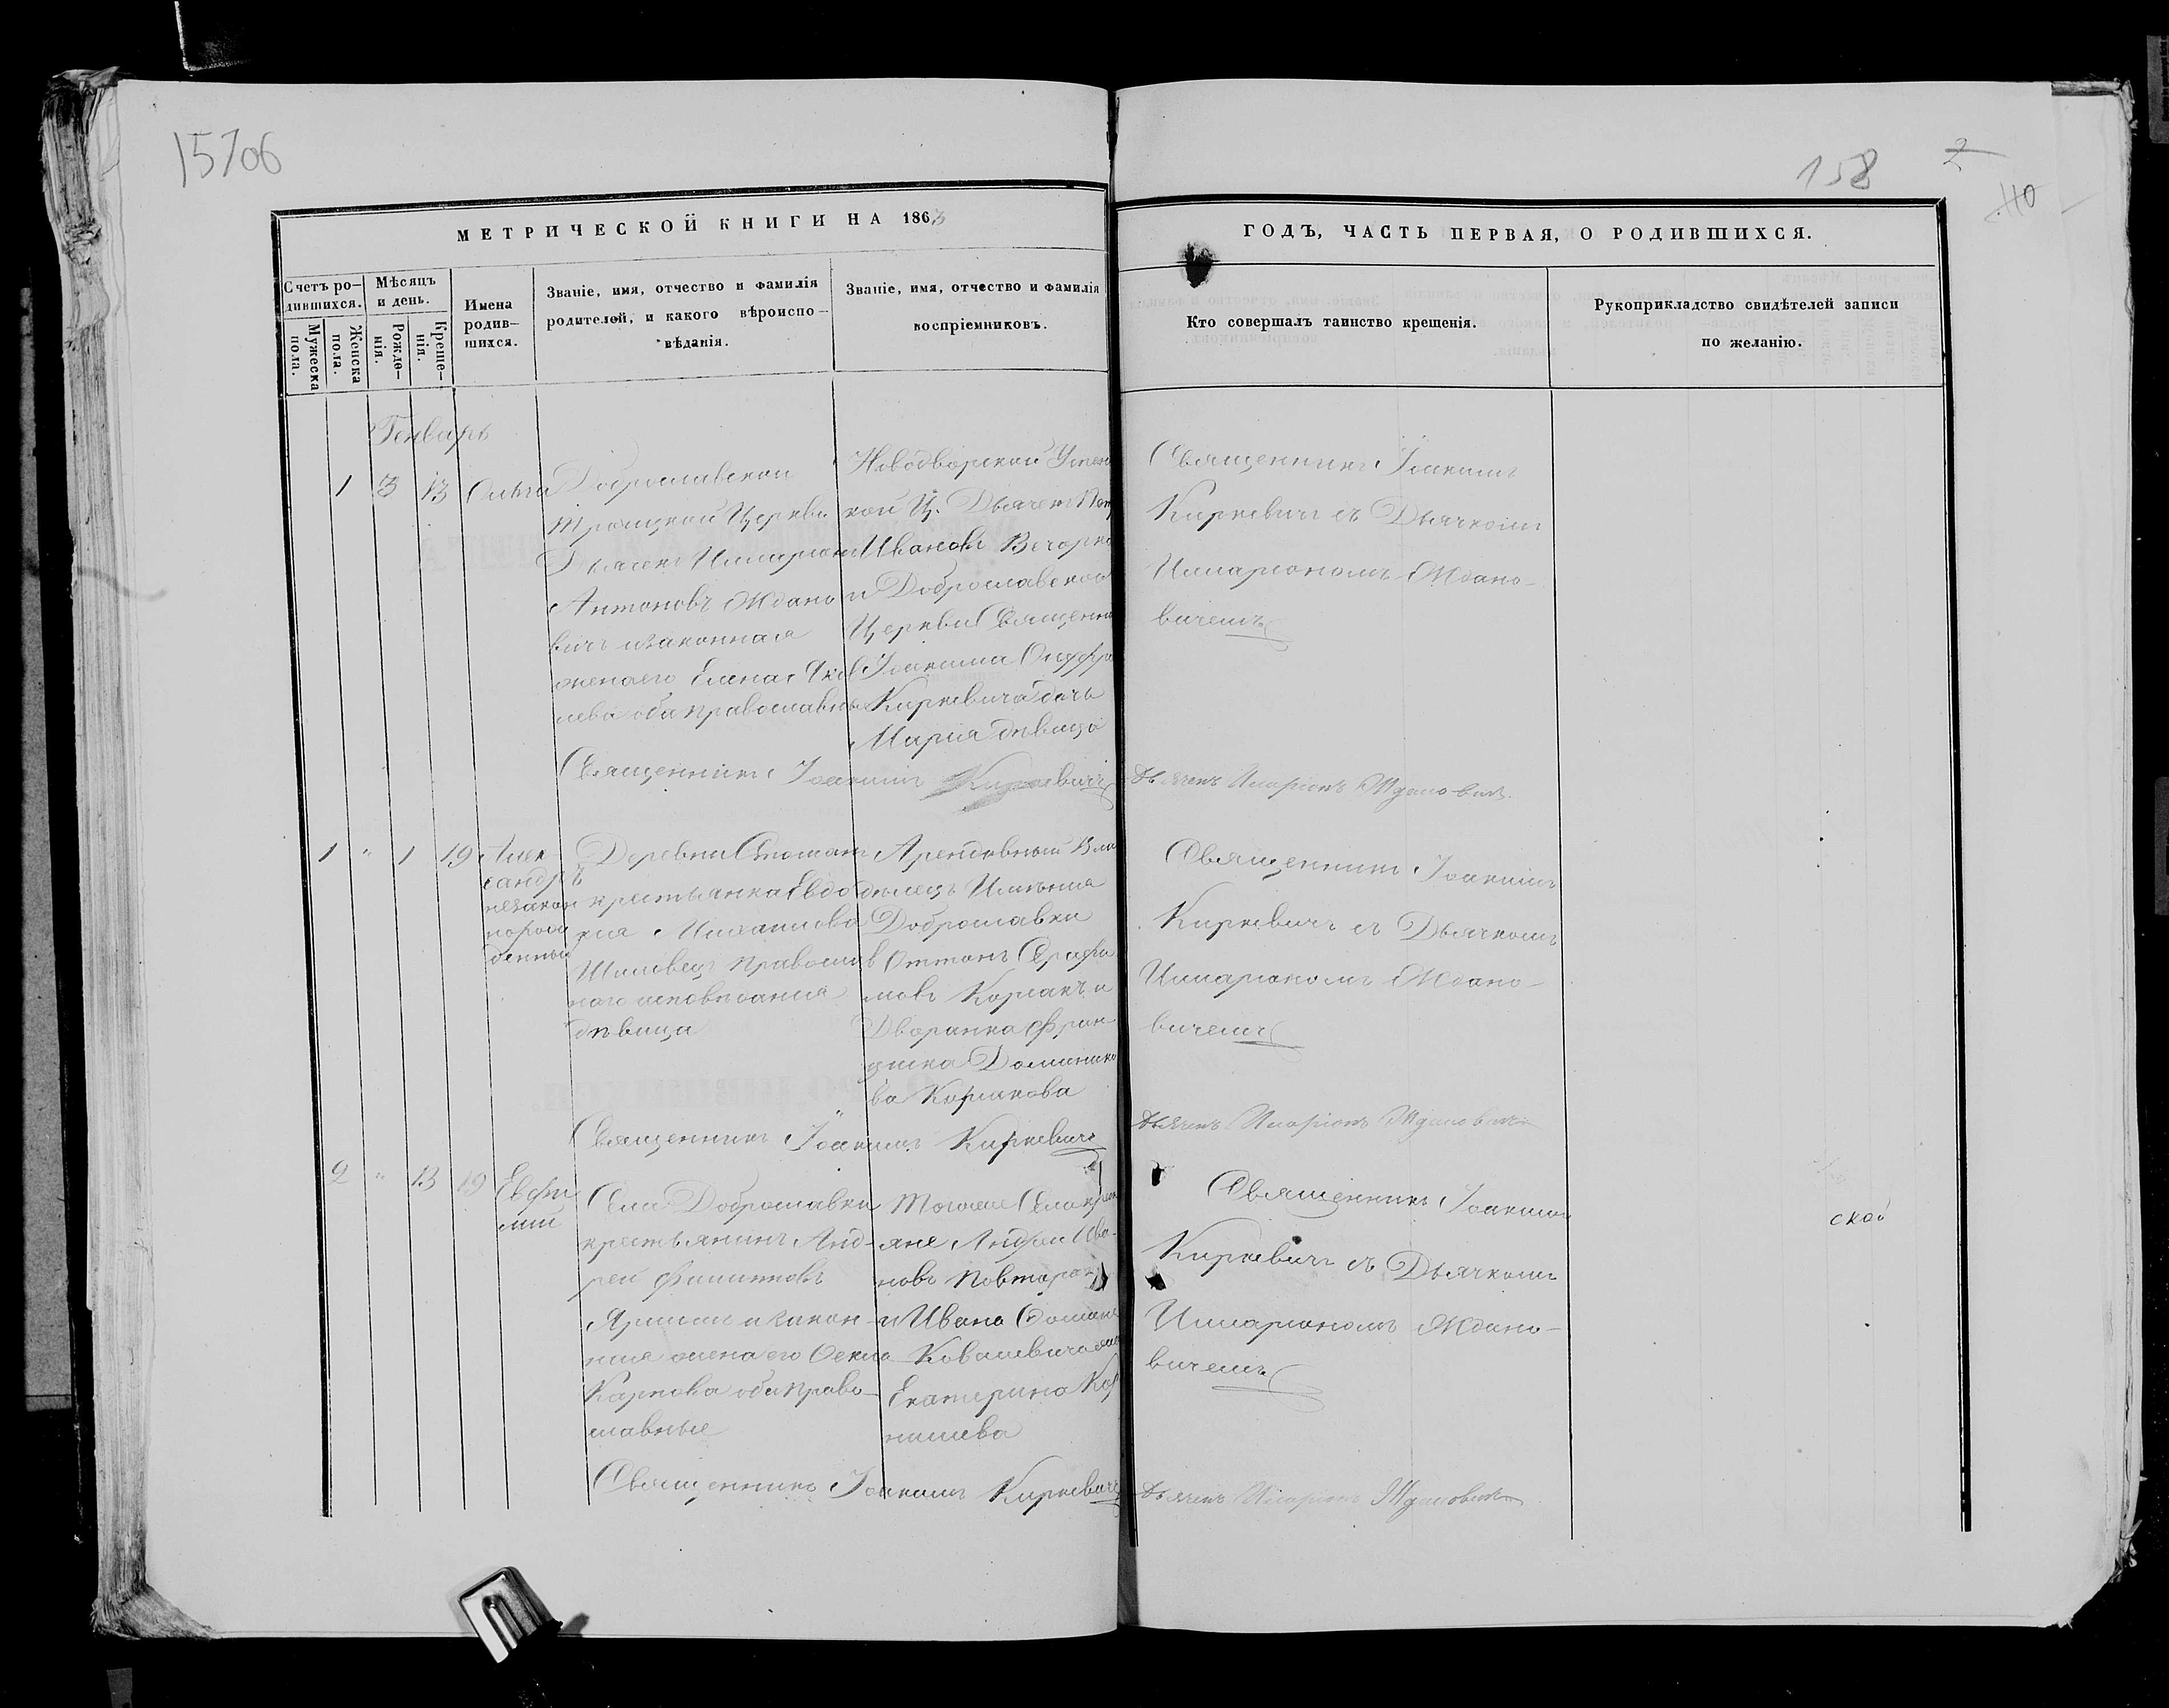 15706
158
2
110
МЕТРИЧЕСКОЙ КНИГИ НА 1863
ГОДЪ, ЧАСТЬ ПЕРВАЯ, О РОДИВШИХСЯ.
Счетъ ро-
дившихся.
Мужеска
пола.
Женска
пола.
Мѣсяцъ
и день.
Рожде-
нія.
Креще-
нія.
Имена
родив-
шихся.
Званіе, имя, отчество и фамилія
родителей, и какого вѣроиспо-
вѣданія.
Званіе, имя, отчество и фамилія
воспріемниковъ.
Кто совершалъ таинство крещенія.
Рукоприкладство свидѣтелей записи
по желанію.
Генварь
1 3 13
Доброславской
Троицкой Церкви
Дьячекъ Иларіонъ
Антоновъ Ждано
вичъ и законная
жена его Елена Яков
лева оба православные
Новодворской Успен
кой Ц. Дьячекъ
Ивановъ Вечорко
и Доброславской
Церкви Священни
Іоакима
Киркевича дочь
Марія дѣвица
Священникъ Іоакимъ
Киркевичъ съ Дьячкомъ
Иларіономъ Ждано-
вичемъ
Священникъ Іоакимъ Киркевичъ
Дьячекъ Иларіонъ Ждановичъ
1 " 1 19
Алек
сандръ
незакон
норож
денный
Деревни
крестьянка Евдо
кія
православ
наго исповѣданія
дѣвица
Арендовный Вла
дѣлецъ Имѣнія
Доброславки
Дворянка Фран
циска Доминико
ва
Священникъ Іоакимъ
Киркевичъ съ Дьячкомъ
Иларіономъ Ждано-
вичемъ
Священникъ Іоакимъ Киркевичъ
Дьячекъ Иларіонъ Ждановичъ
2 " 13 19
Евфи
мій
Села Доброславки
крестьянинъ Анд-
рей Филиповъ
и закон-
ная жена его
Карпова оба право-
славные
Того же Села
яне Андрей Ива-
новъ
и Ивана
Ковалевича
Екатерина
Священникъ Іоакимъ
Киркевичъ съ Дьячкомъ
Иларіономъ Ждано-
вичемъ
ской
Священникъ Іоакимъ Киркевичъ
Дьячекъ Иларіонъ Ждановичъ